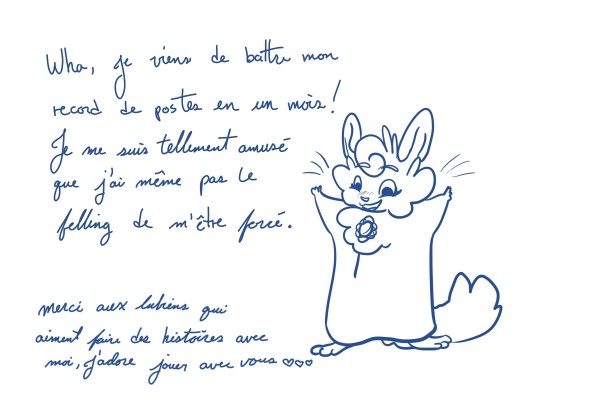 Wha, je viens de battre mon
record de postes en un mois!
Je me suis tellement amusé
que j'ai même pas le
felling de m'être forcé.
merci aux lubiens qui
aiment faire des histoires avec
moi, j'adore jouer avec vous ♡♡♡